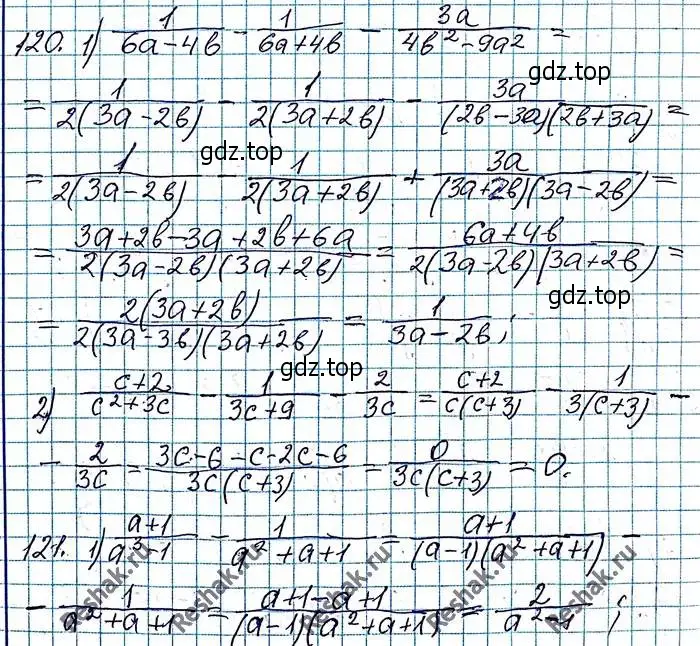 120. 1) 1/(6a-4в) - 1/(6a+4в) - 3a/(4в²-9a²) =
gdz.top
= 1/(2(3a-2в)) - 1/(2(3a+2в)) - 3a/((2в-3a)(2в+3a)) =
gdz.top
= 1/(2(3a-2в)) - 1/(2(3a+2в)) + 3a/((3a+2в)(3a-2в)) =
= (3a+2в-3a+2в+6a)/(2(3a-2в)(3a+2в)) = (6a+4в)/(2(3a-2в)(3a+2в)) =
gdz.top
= 2(3a+2в)/(2(3a-3в)(3a+2в)) = 1/(3a-2в);
gdz.top
2) (c+2)/(c²+3c) - 1/(3c+9) - 2/(3c) = (c+2)/(c(c+3)) - 1/(3(c+3)) -
- 2/(3c) = (3c-6-c-2c-6)/(3c(c+3)) = 0/(3c(c+3)) = 0.
121. 1) (a+1)/(a³-1) - 1/(a²+a+1) = (a+1)/((a-1)(a²+a+1)) -
- 1/(a²+a+1) = (a+1-a+1)/((a-1)(a²+a+1)) = 2/(a²-1);
Reshak.ru
Reshak.ru
Reshak.ru
Reshak.ru